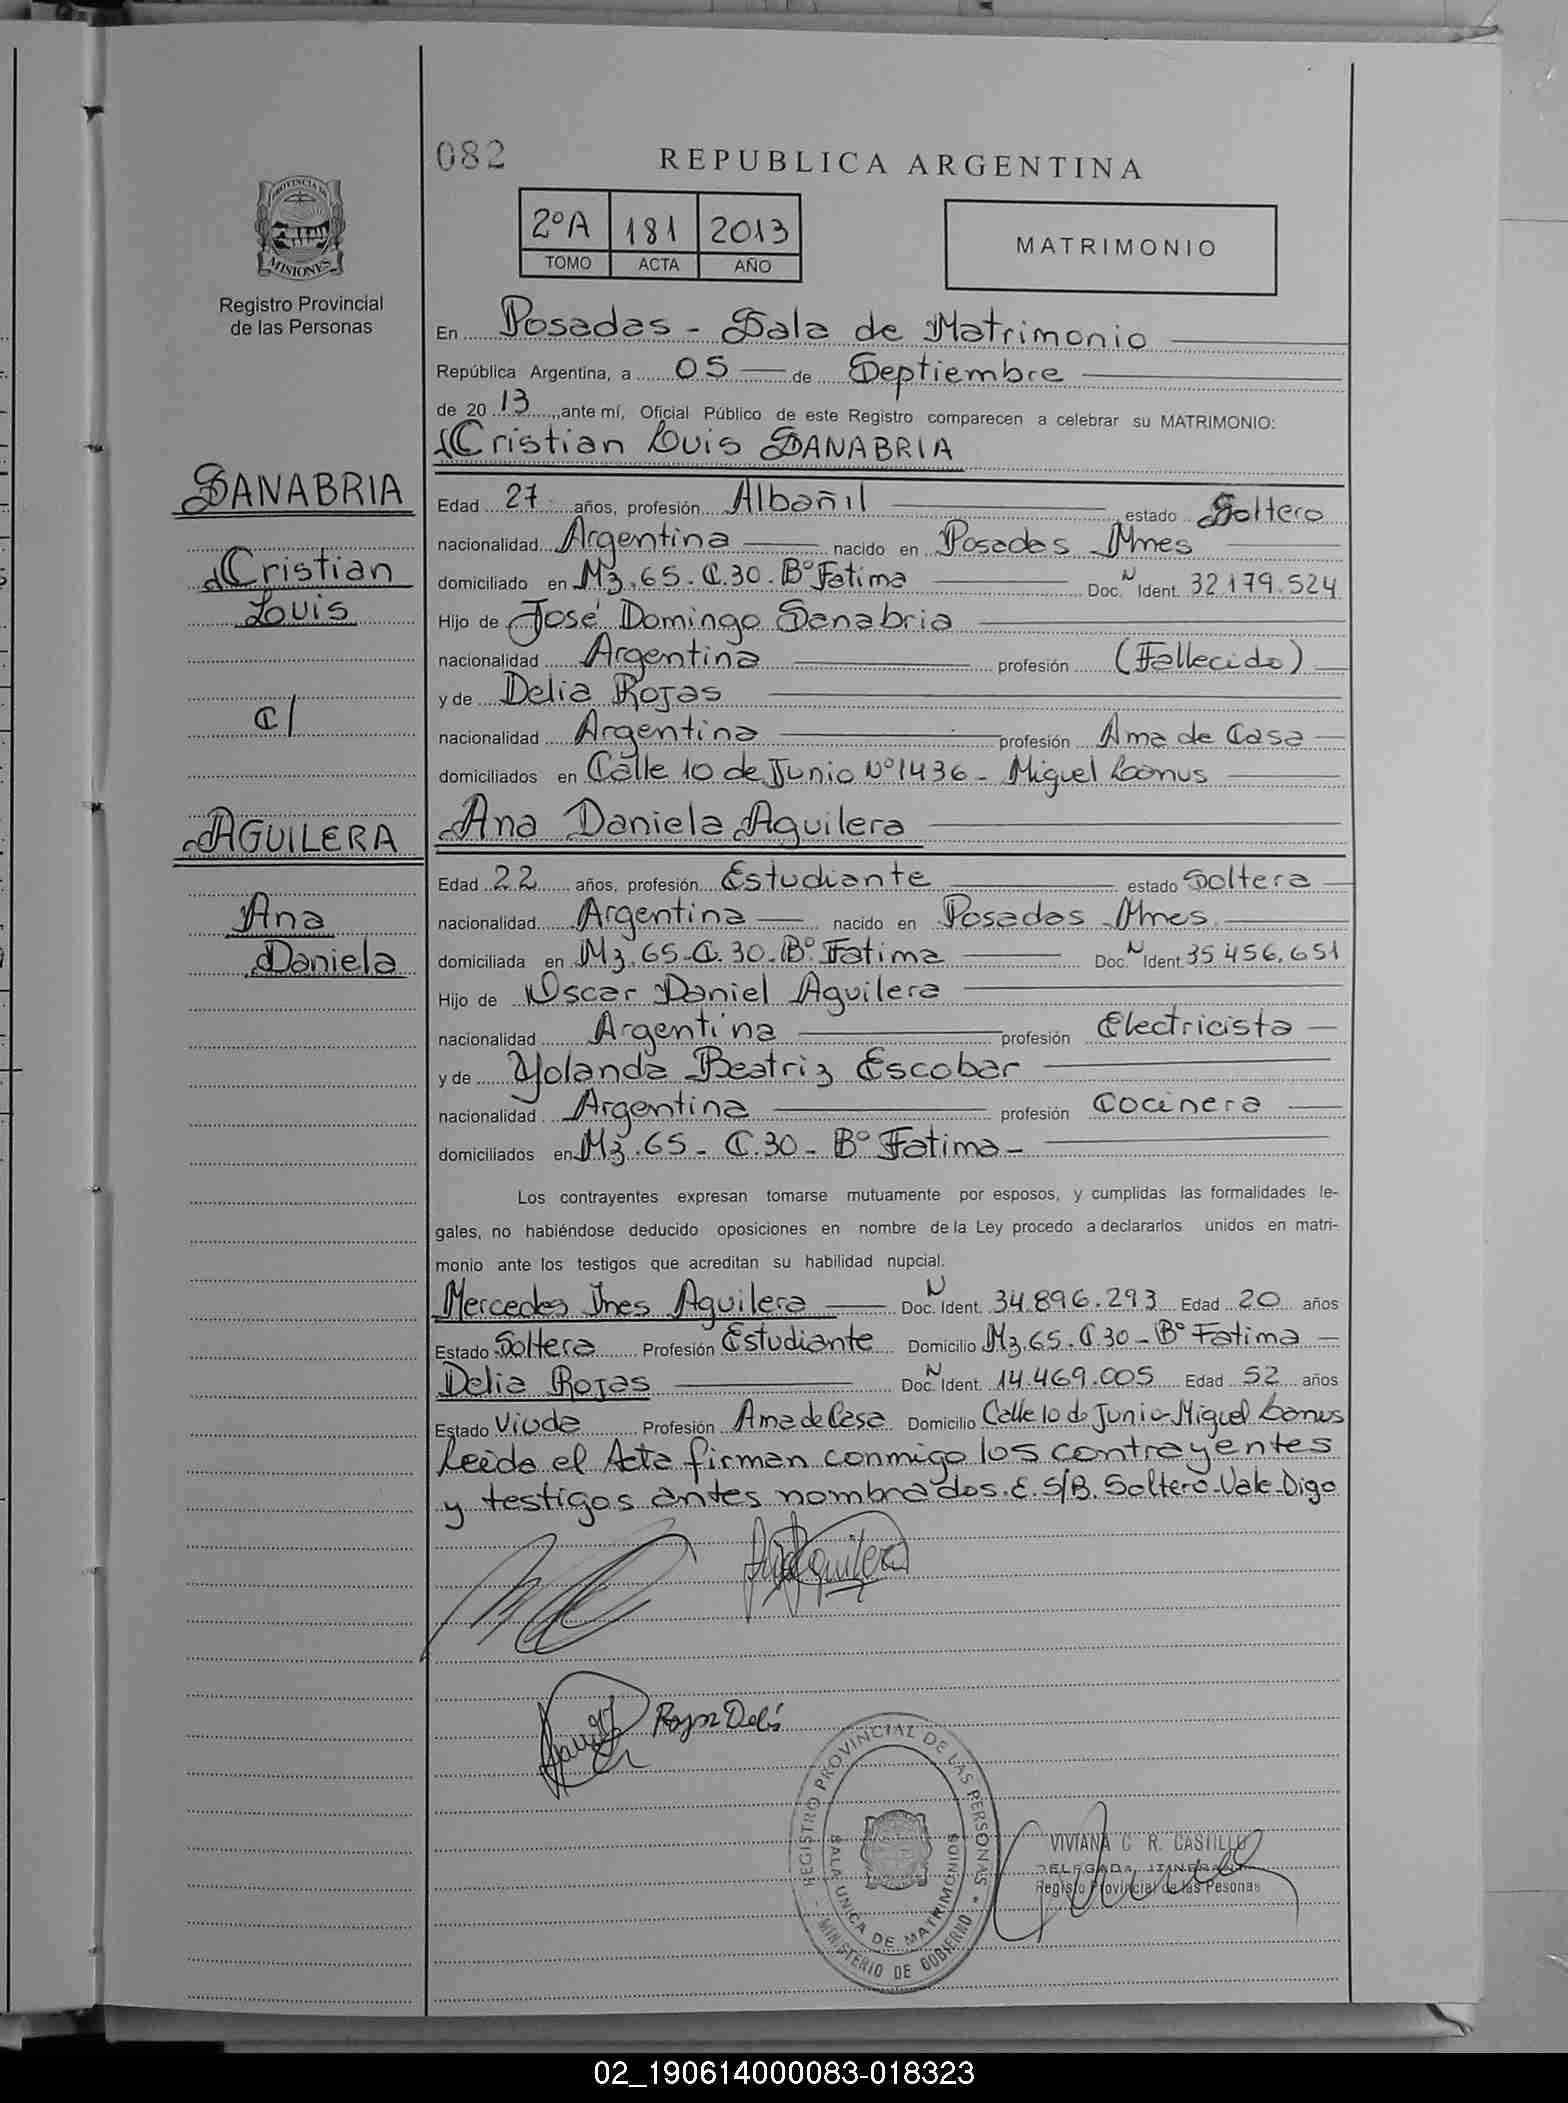 082
REPUBLICA ARGENTINA
2ºA 181 2013
TOMO ACTA AÑO
MATRIMONIO
PROVINCIA DE
MISIONES
Registro Provincial
de las Personas
En Posadas - Sala de Matrimonio
República Argentina, a 05 de Septiembre
de 2013, ante mí, Oficial Público de este Registro comparecen a celebrar su MATRIMONIO:
Cristian Luis SANABRIA
SANABRIA
Cristian
Luis
c/
AGUILERA
Ana
Daniela
Edad 27 años, profesión Albañil estado Soltero
nacionalidad Argentina nacido en Posadas Mnes
domiciliado en Mz.65.C.30.Bº Fatima Doc. N Ident. 32.179.524
Hijo de José Domingo Sanabria
nacionalidad Argentina profesión (Fallecido)
y de Delia Rojas
nacionalidad Argentina profesión Ama de Casa
domiciliados en Calle 10 de Junio Nº1436 - Miguel Lanus
Ana Daniela Aguilera
Edad 22 años, profesión Estudiante estado Soltera
nacionalidad Argentina nacido en Posadas Mnes.
domiciliada en Mz.65-C.30-Bº Fatima Doc. N Ident. 35.456.651
Hijo de Oscar Daniel Aguilera
nacionalidad Argentina profesión Electricista
y de Yolanda Beatriz Escobar
nacionalidad Argentina profesión Cocinera
domiciliados en Mz.65 - C.30 - Bº Fatima -
Los contrayentes expresan tomarse mutuamente por esposos, y cumplidas las formalidades le-
gales, no habiéndose deducido oposiciones en nombre de la Ley procedo a declararlos unidos en matri-
monio ante los testigos que acreditan su habilidad nupcial.
Mercedes Ines Aguilera Doc. N Ident. 34.896.293 Edad 20 años
Estado Soltera Profesión Estudiante Domicilio Mz.65.C.30 - Bº Fatima
Delia Rojas Doc. N Ident. 14.469.005 Edad 52 años
Estado Viuda Profesión Ama de Casa Domicilio Calle 10 de Junio - Miguel Lanus
Leida el Acta firman conmigo los contrayentes
y testigos antes nombrados. E. S/B. Soltero - Vale - Digo
Aguilera
Rojas Delia
REGISTRO PROVINCIAL DE LAS PERSONAS
SALA UNICA DE MATRIMONIOS
MINISTERIO DE GOBIERNO
VIVIANA C. R. CASTILLO
DELEGADA ITINERANTE
Registro Provincial de las Pesonas
02_190614000083-018323